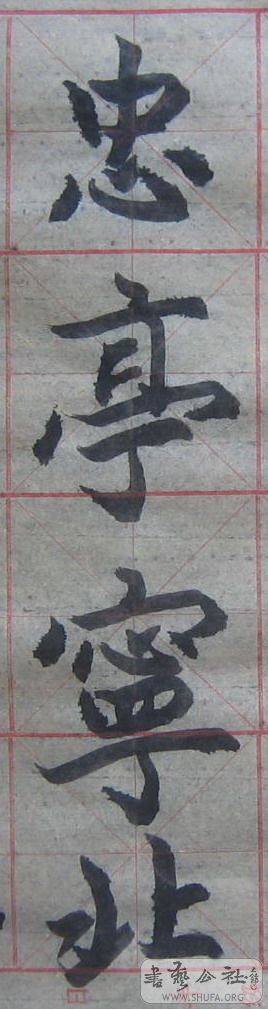 忠亭寧北
書藝公社
www.SHUFA.ORG